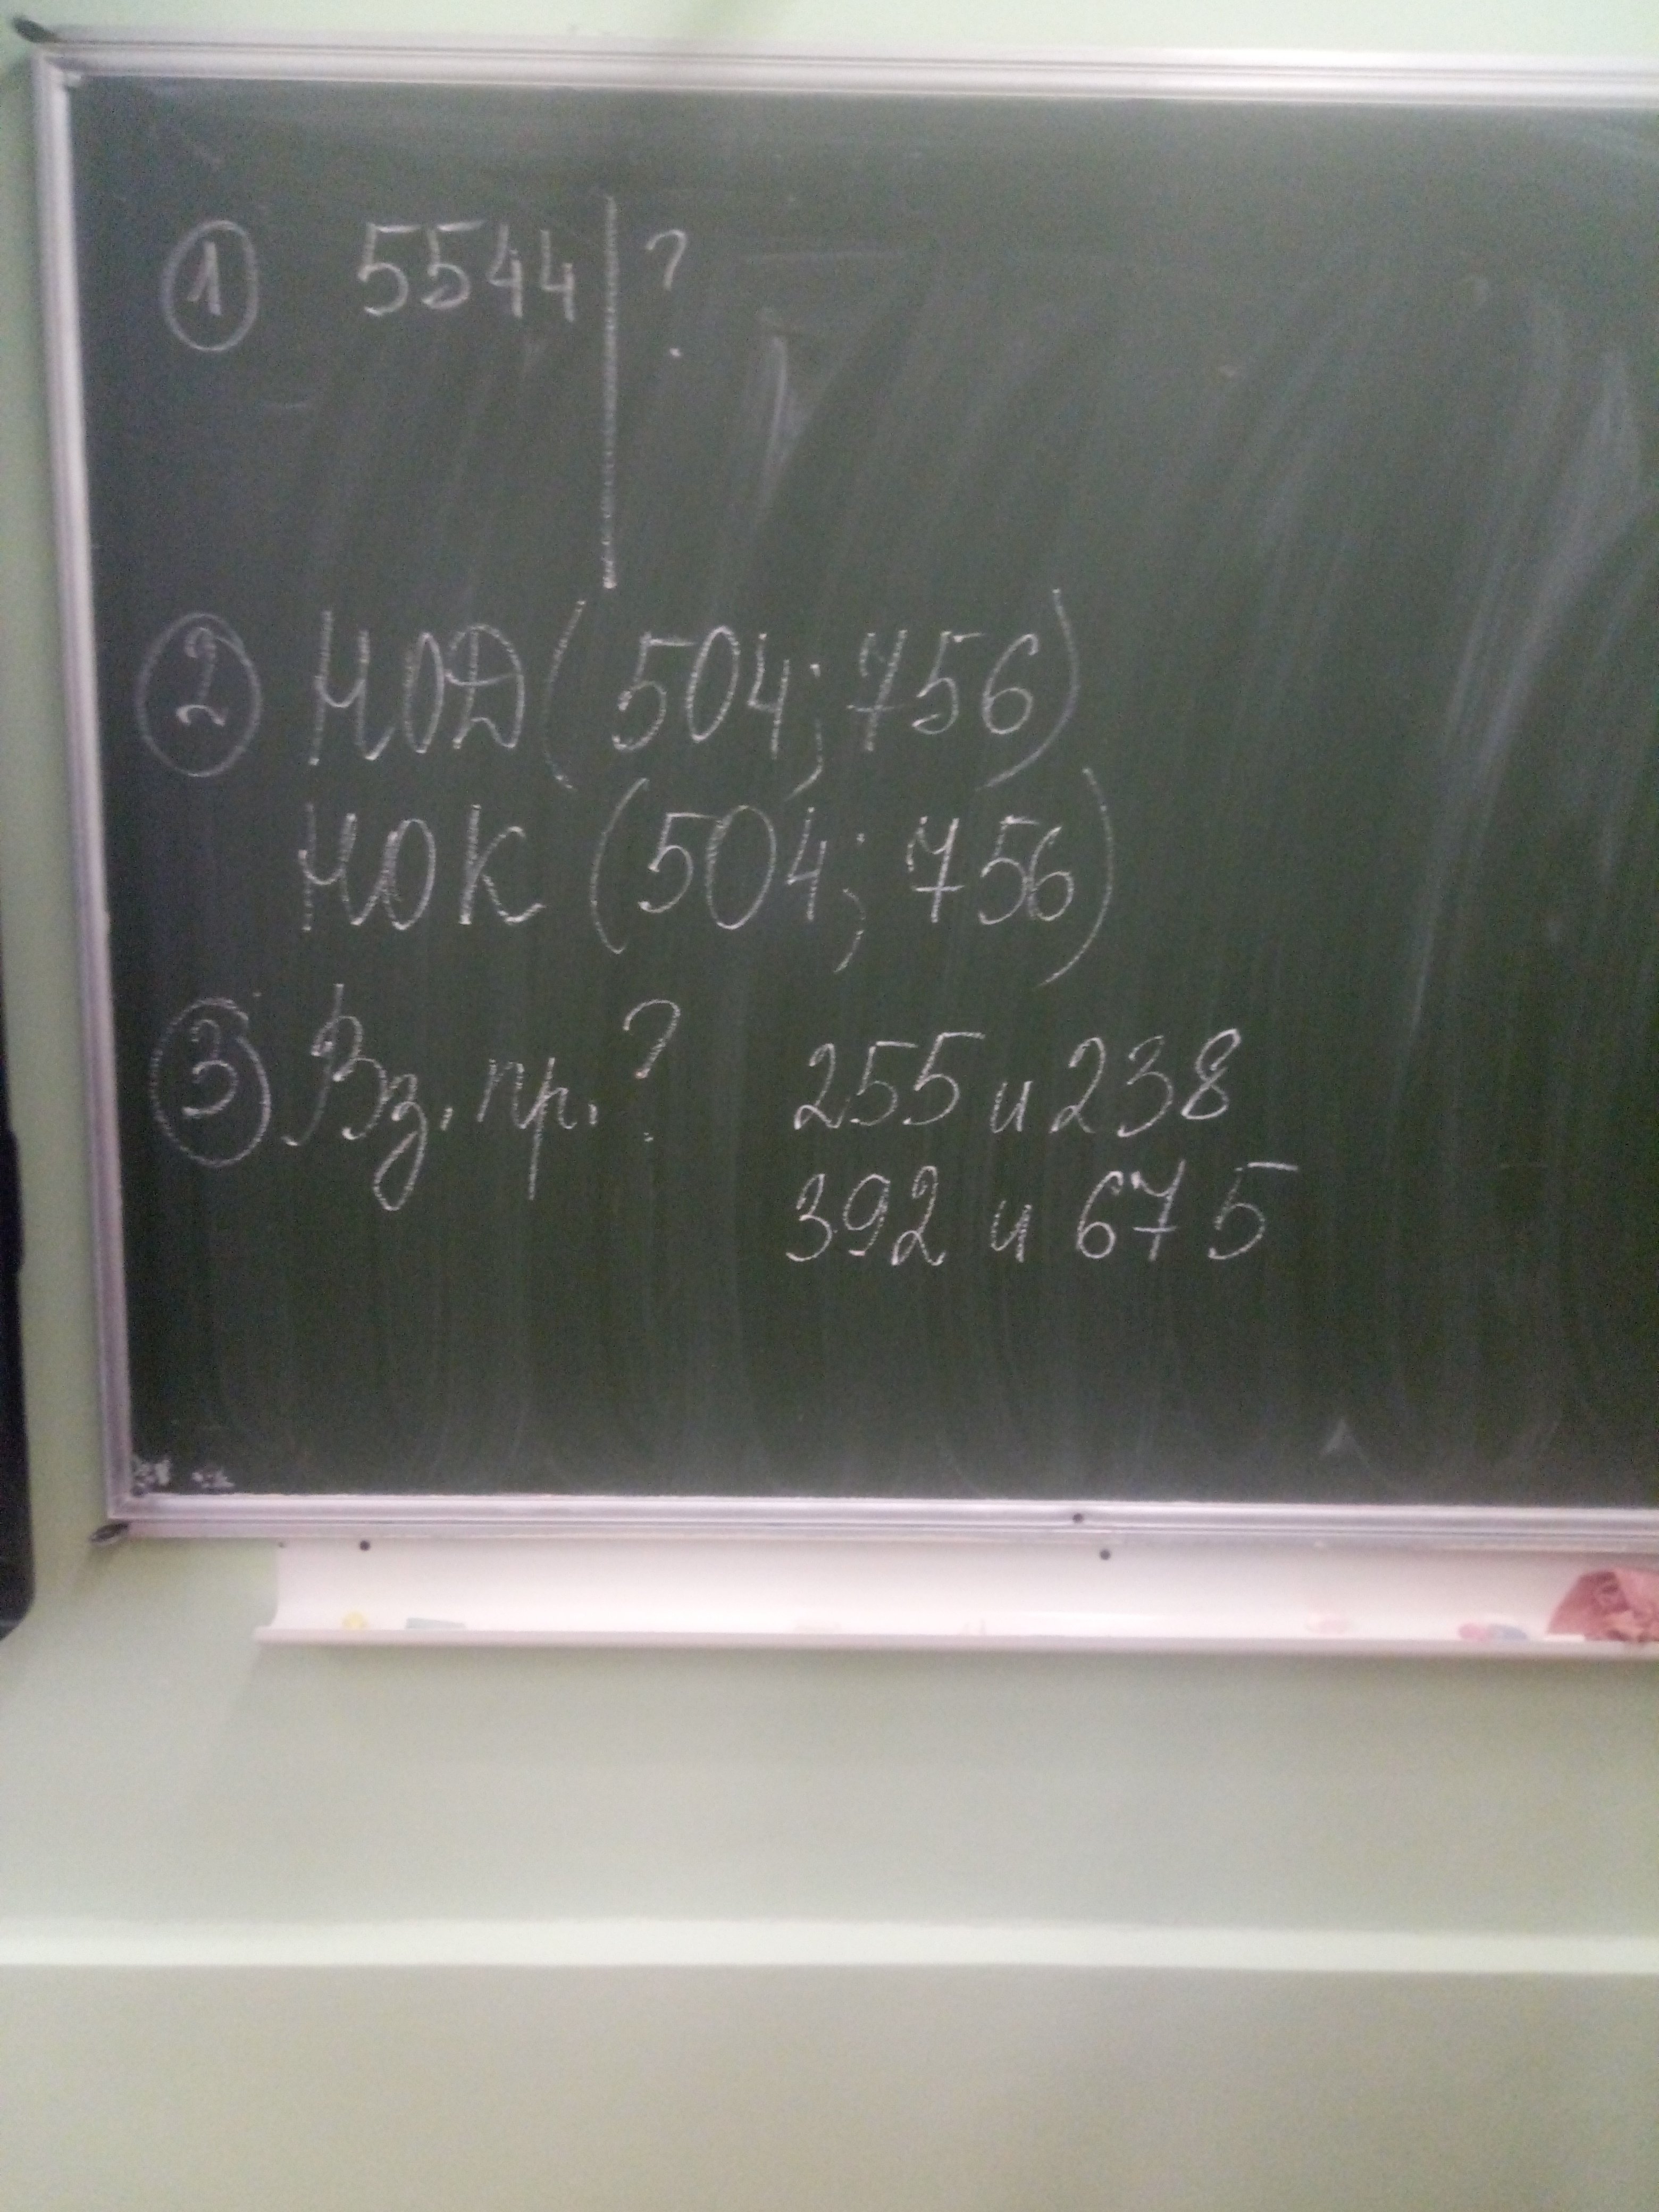 ① 5544 | ?
② НОД (504; 756)
НОК (504; 756)
③ Вз. пр. ? 255 и 238
392 и 675